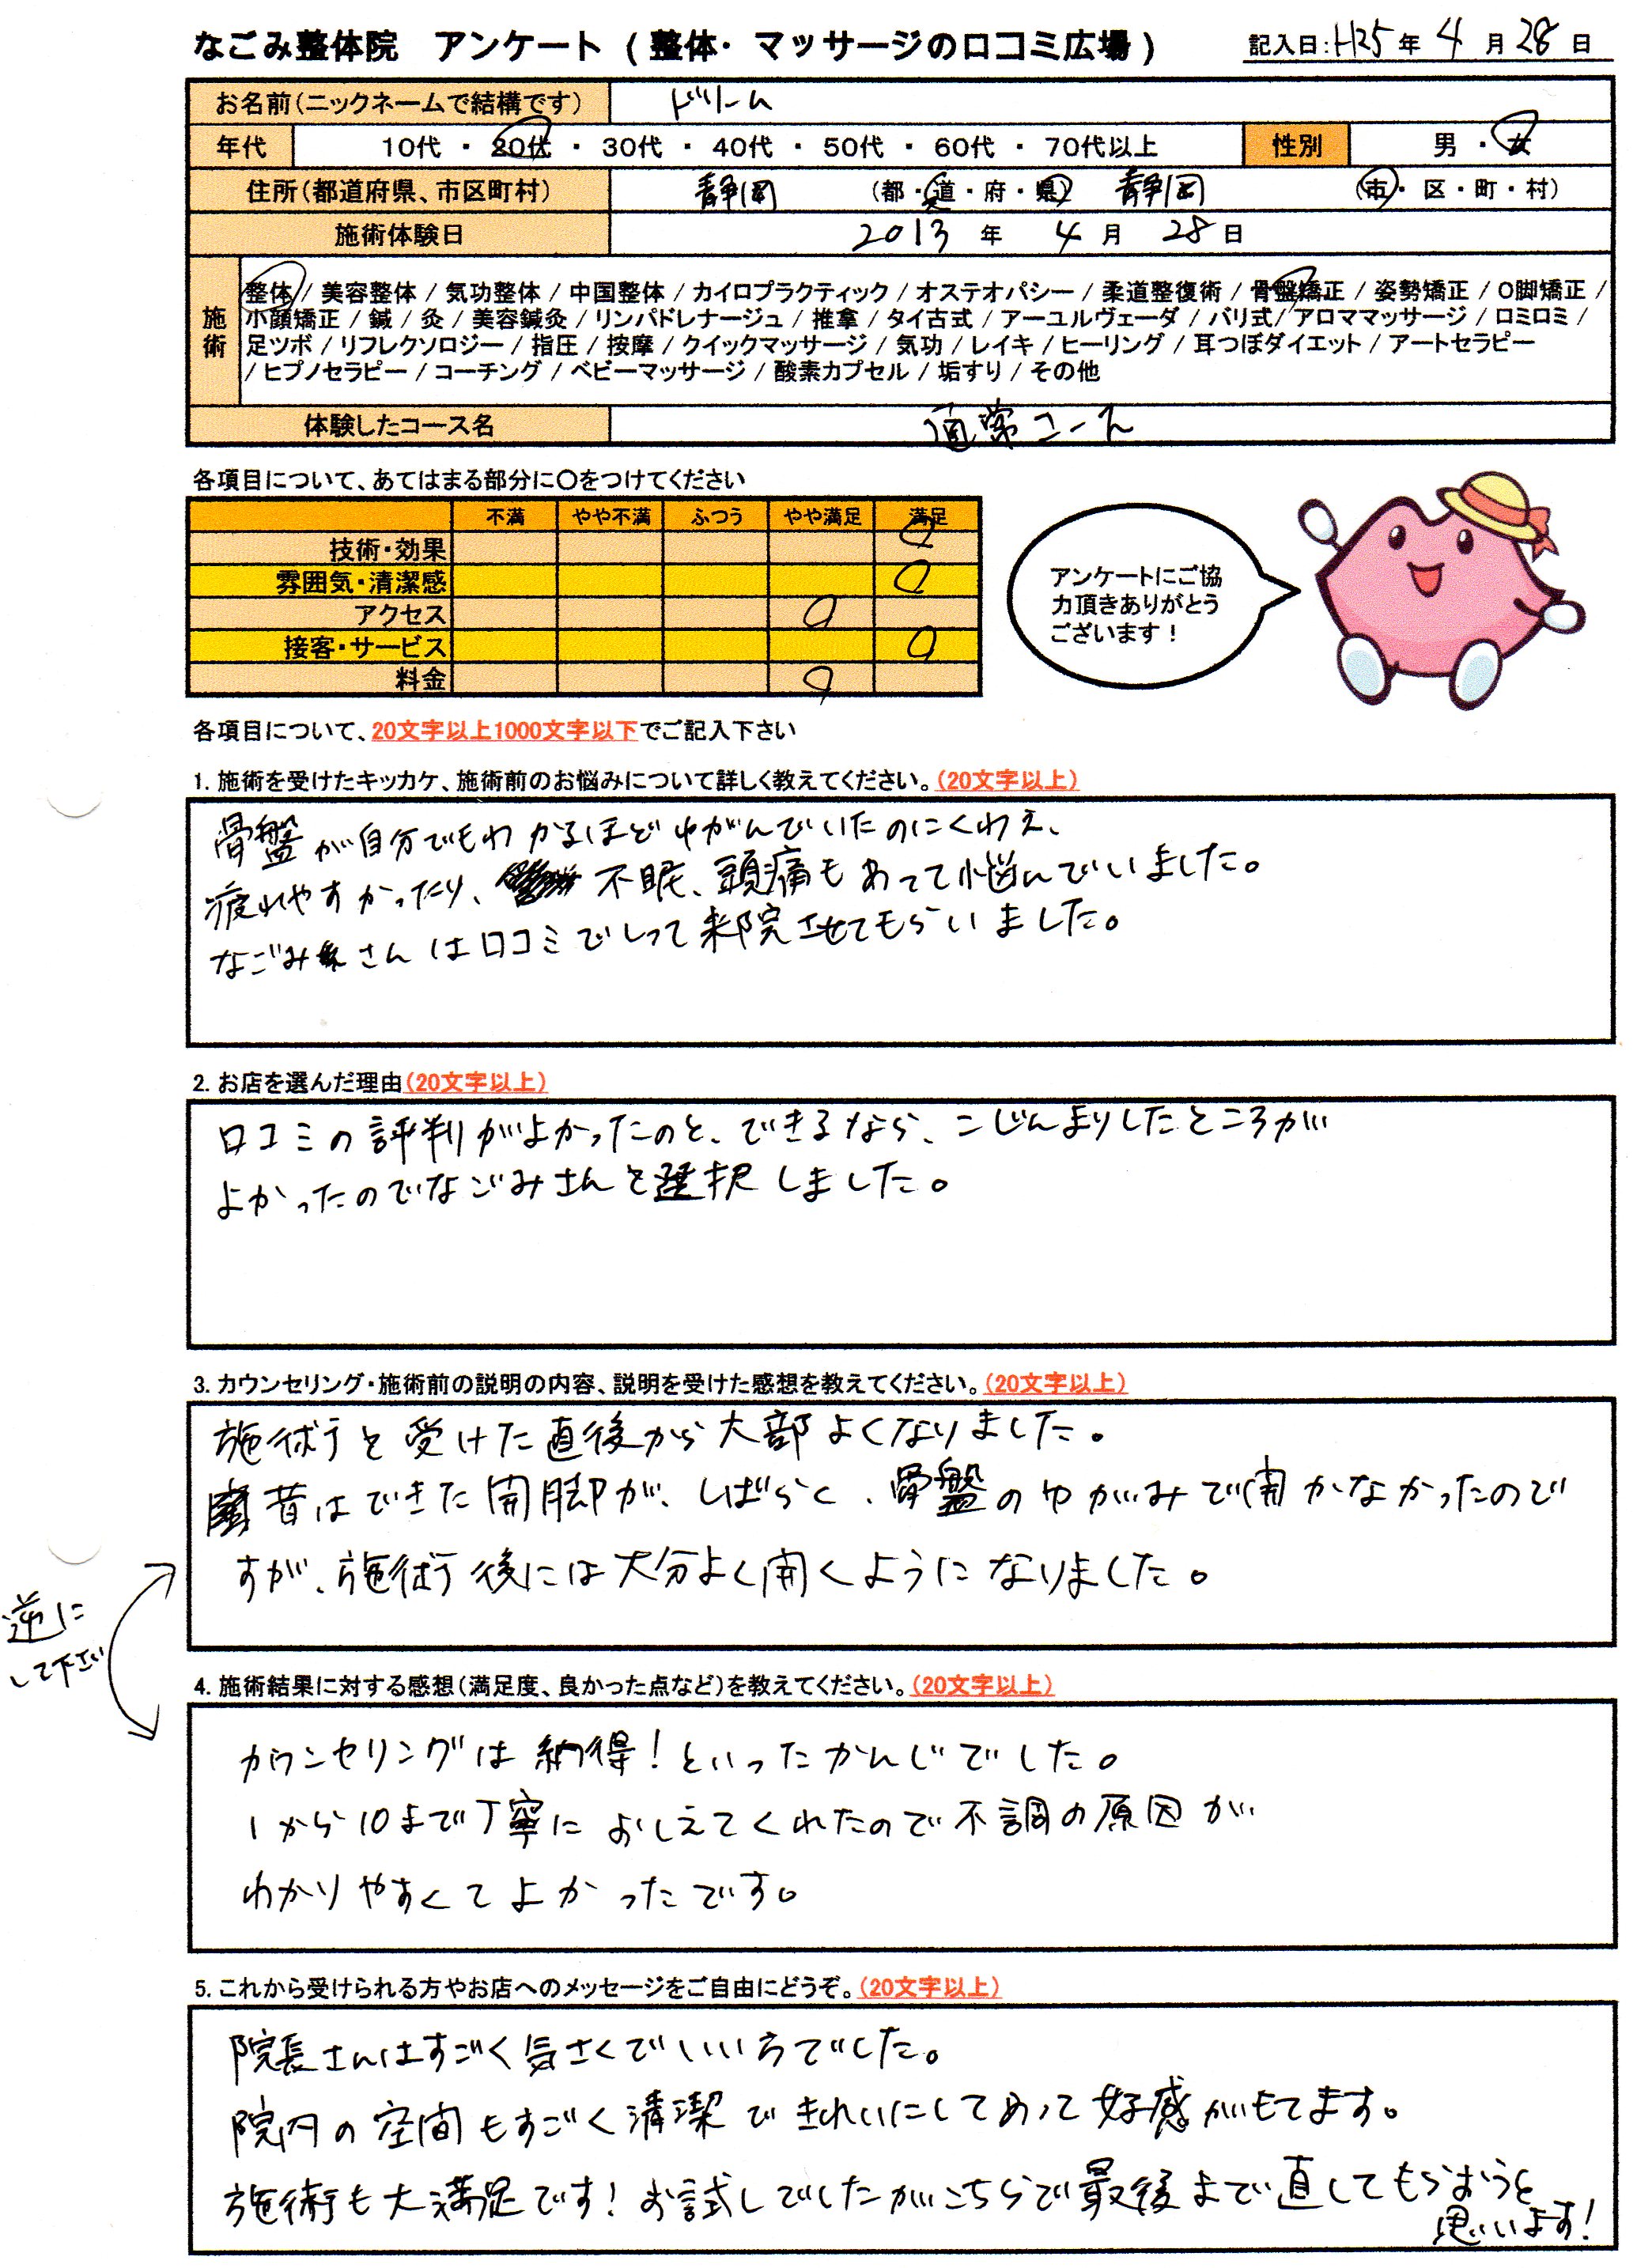 なごみ整体院　アンケート（整体・マッサージの口コミ広場）
記入日：H25年 4月28日
お名前（ニックネームで結構です）　ドリーム
年代　10代 ・ 20代 ・ 30代 ・ 40代 ・ 50代 ・ 60代 ・ 70代以上　性別　男 ・ 女
住所（都道府県、市区町村）　静岡　（都・道・府・県）　静岡　（市・区・町・村）
施術体験日　2013 年 4 月 28 日
施術
整体 / 美容整体 / 気功整体 / 中国整体 / カイロプラクティック / オステオパシー / 柔道整復術 / 骨盤矯正 / 姿勢矯正 / O脚矯正 /
小顔矯正 / 鍼 / 灸 / 美容鍼灸 / リンパドレナージュ / 推拿 / タイ古式 / アーユルヴェーダ / バリ式 / アロママッサージ / ロミロミ /
足ツボ / リフレクソロジー / 指圧 / 按摩 / クイックマッサージ / 気功 / レイキ / ヒーリング / 耳つぼダイエット / アートセラピー
/ ヒプノセラピー / コーチング / ベビーマッサージ / 酸素カプセル / 垢すり / その他
体験したコース名　通常コース
各項目について、あてはまる部分に〇をつけてください
不満　やや不満　ふつう　やや満足　満足
技術・効果
雰囲気・清潔感
アクセス
接客・サービス
料金
アンケートにご協
力頂きありがとう
ございます！
各項目について、20文字以上1000文字以下でご記入下さい
1. 施術を受けたキッカケ、施術前のお悩みについて詳しく教えてください。（20文字以上）
骨盤が自分でもわかるほどゆがんでいたのにくわえ、
疲れやすかったり、不眠、頭痛もあって悩んでいました。
なごみさんは口コミでしって来院させてもらいました。
2. お店を選んだ理由（20文字以上）
口コミの評判がよかったのと、できるなら、こじんまりしたところが
よかったのでなごみさんを選択しました。
3. カウンセリング・施術前の説明の内容、説明を受けた感想を教えてください。（20文字以上）
施術を受けた直後から大部よくなりました。
昔はできた開脚が、しばらく、骨盤のゆがみで開かなかったので
すが、施術後には大分よく開くようになりました。
逆に
して下さい
4. 施術結果に対する感想（満足度、良かった点など）を教えてください。（20文字以上）
カウンセリングは納得！といったかんじでした。
1から10まで丁寧におしえてくれたので不調の原因が
わかりやすくてよかったです。
5. これから受けられる方やお店へのメッセージをご自由にどうぞ。（20文字以上）
院長さんはすごく気さくでいい方でした。
院内の空間もすごく清潔できれいにしてあって好感がもてます。
施術も大満足です！お試しでしたがこちらで最後まで直してもらおうと
思います！